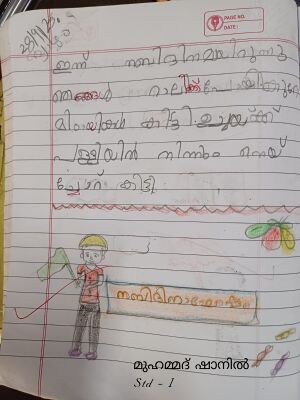 PAGE NO.
DATE:
ഇന്ന് നബിദിനമായിരുന്നു
ഞങ്ങൾ റാലിക്ക് പോയിരുന്നു
മിഠായികൾ കിട്ടി. ഉച്ചയ്ക്ക്
പള്ളിയിൽ നിന്നും നെയ്
ച്ചോറ് കിട്ടി
മുഹമ്മദ് ഷാനിൽ
Std - I